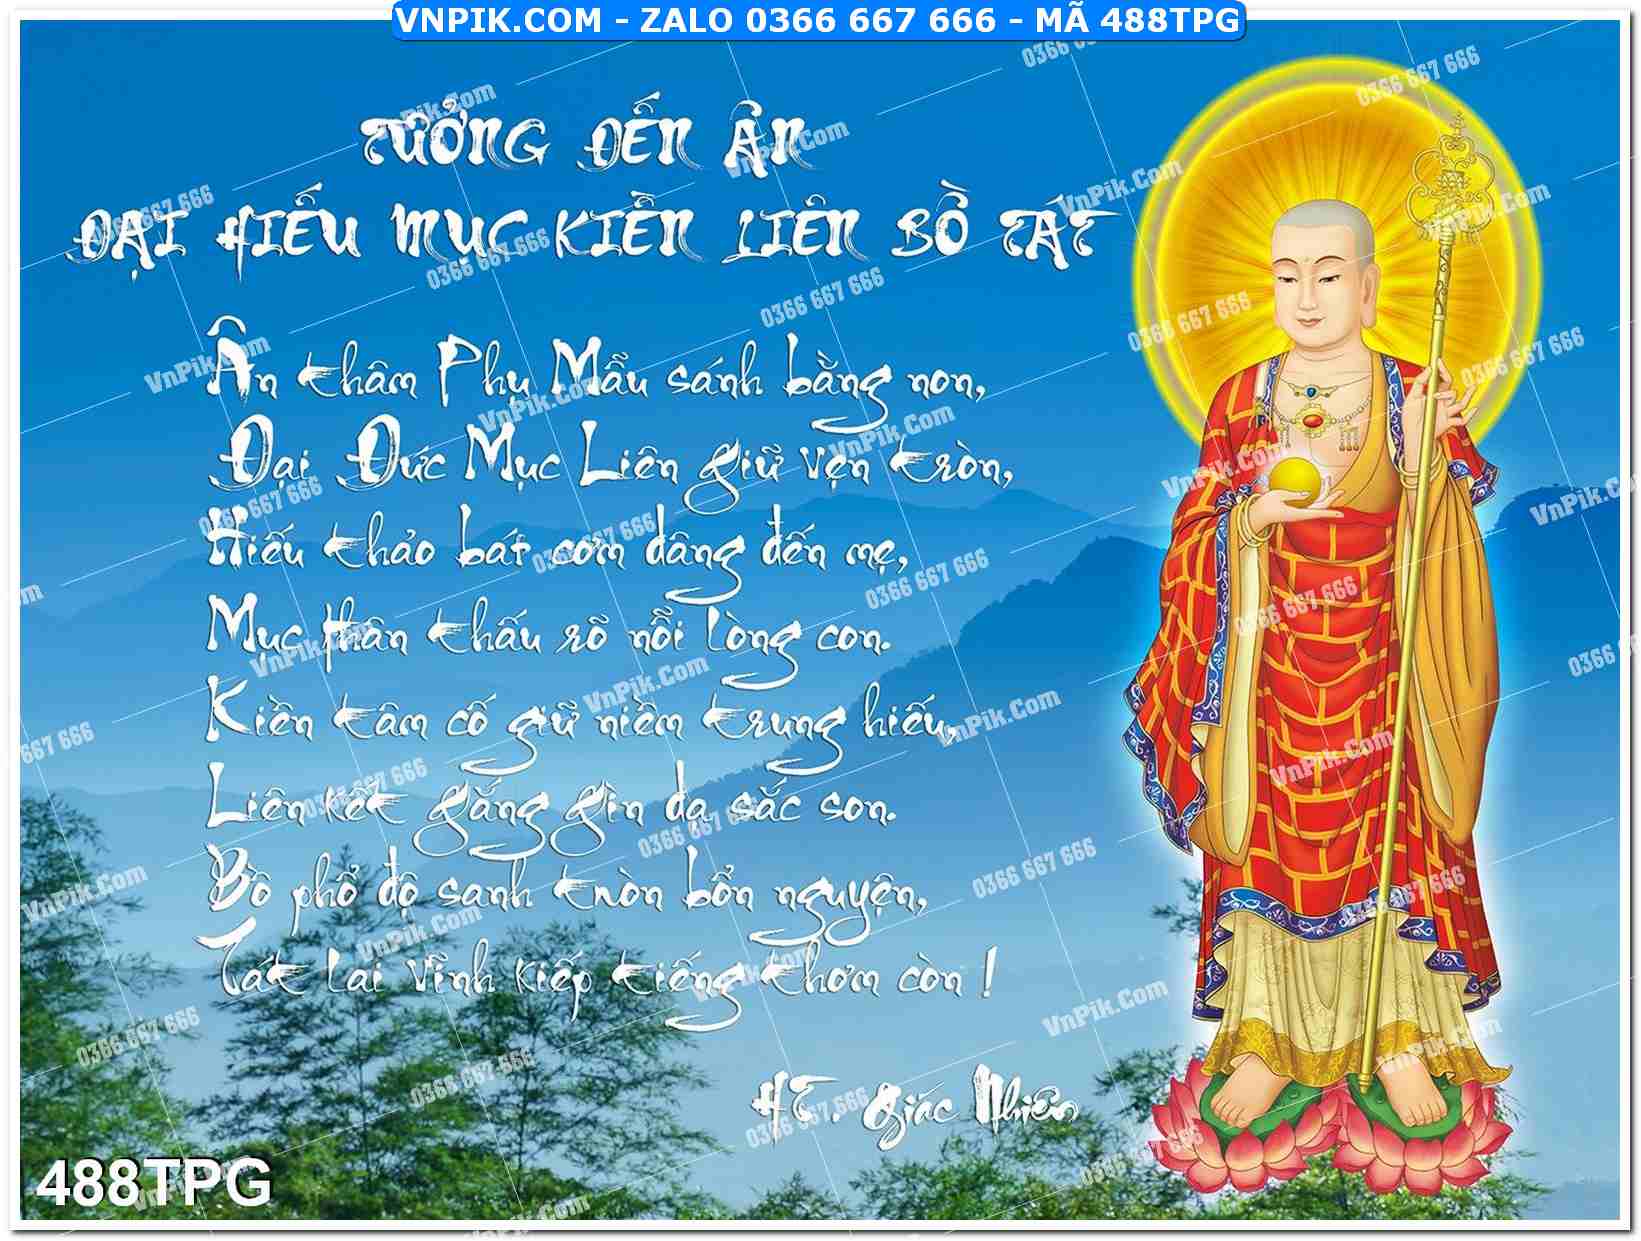 VNPIK.COM - ZALO 0366 667 666 - MÃ 488TPG
TƯỞNG ĐẾN ÂN
ĐẠI HIẾU MỤC KIỀN LIÊN BỒ TÁT
Ân thâm Phụ Mẫu sánh bằng non,
Đại Đức Mục Liên giữ vẹn tròn,
Hiếu thảo bát cơm dâng đến mẹ,
Mục thân thấu rõ nỗi lòng con.
Kiền tâm cố giữ niềm trung hiếu,
Liên kết gắng gìn dạ sắc son.
Bồ phổ độ sanh tròn bổn nguyện,
Tát lai vĩnh kiếp tiếng thơm còn !
HT. Giác Nhiên
488TPG
VnPik.Com
0366 667 666